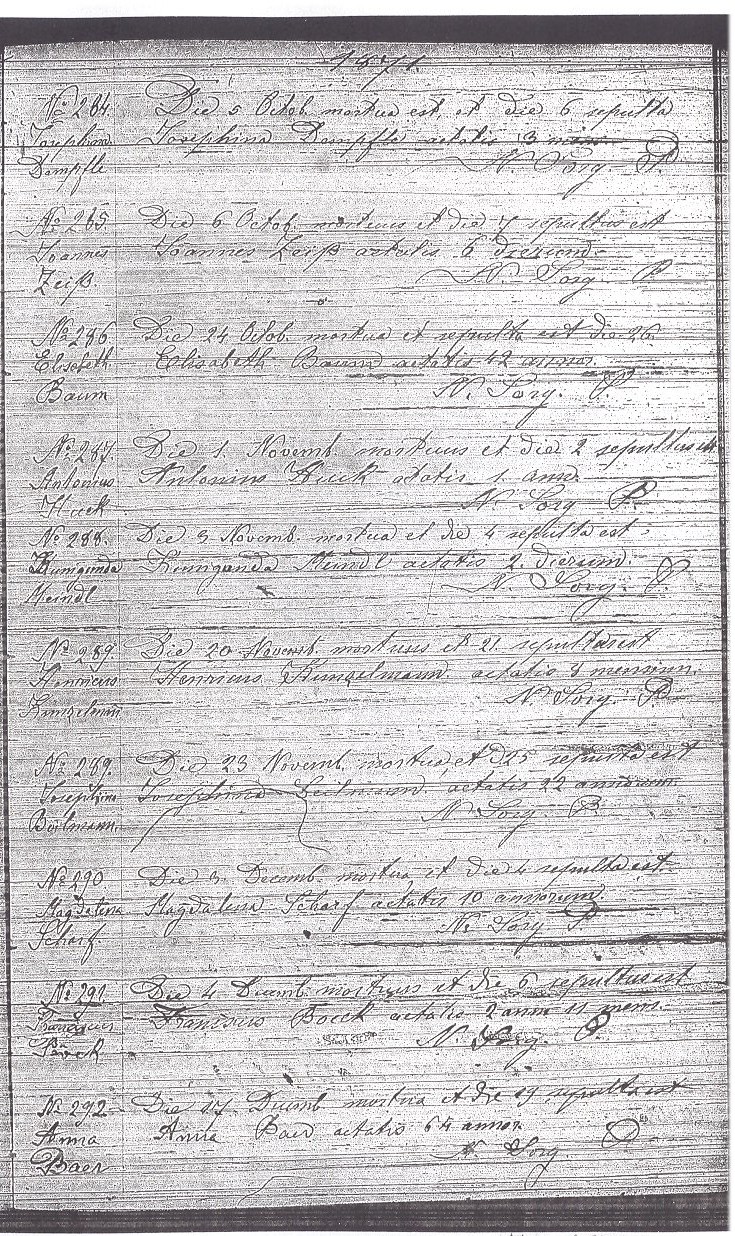 1871.
No 284. Die 5 Octob. mortua est, et die 6 sepulta
Josephina Josephina Dampfle aetatis 3 mens.
Dampfle N. Sorg. P.
No 285. Die 6 Octob. mortuus et die 7 sepultus est
Joannes Joannes Zeiß aetatis 6 dierum.
Zeiß. N. Sorg P.
No 286. Die 24 Octob. mortua et sepulta est die 26
Elisabeth Elisabeth Baum aetatis 42 annor.
Baum N. Sorg. P.
No 287. Die 1. Novemb. mortuus et die 2 sepultus est.
Antonius Antonius Huck aetatis 1. ann.
Huck N. Sorg P.
No 288. Die 3 Novemb. mortua et die 4 sepulta est
Kunigunda Kunigunda Meindl aetatis 2. dierum.
Meindl N. Sorg. P.
No 289. Die 20 Novemb. mortuus et 21. sepultus est
Henricus Henricus Kunzelmann aetatis 3 mensium.
Kunzelmann N. Sorg. P.
No 289. Die 23 Novemb. mortua et d 25 sepulta est
Josephina Josephina aetatis 22 annorum.
N Sorg. P.
No 290 Die 3. Decemb. mortua et die 4 sepulta est.
Magdalena Magdalena Scharf aetatis 10 annorum.
Scharf. N. Sorg P.
No 291. Die 4 Decemb. mortuus et die 6 sepultus est
Boeck aetatis 2 ann 11 mens.
N. Sorg. P.
No 292 Die 17. Decemb mortua et die 19 sepulta est
Anna Anna Baer aetatis 64 annor.
Baer N. Sorg.